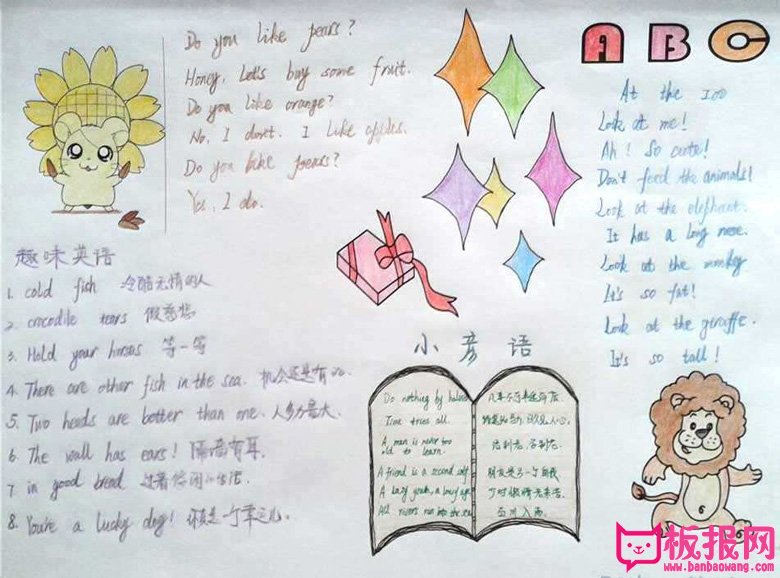 Do you like pears?
Honey, Let's buy some fruit.
Do you like orange?
No, I don't. I like apples.
Do you like pears?
Yes, I do.
ABC
At the zoo
Look at me!
Ah! So cute!
Don't feed the animals!
Look at the elephant.
It has a long nose.
Look at the monkey
It's so fat!
Look at the giraffe.
It's so tall!
趣味英语
1. cold fish 冷酷无情的人
2. crocodile tears 假慈悲
3. Hold your horses 等一等
4. There are other fish in the sea. 机会还是有的.
5. Two heads are better than one. 人多力量大.
6. The wall has ears! 隔墙有耳.
7 in good bread 过着悠闲的生活
8. You're a lucky dog! 你真是一个幸运儿.
小彦语
Do nothing by halves
Time tries all.
A man is never too
old to learn.
A friend is a second self
A lazy youth, a lousy age
All rivers run into the sea
凡事不可半途而废.
路遥知马力,日久见人心.
活到老,学到老.
朋友是另一个自我
少时懒惰老来苦.
百川入海.
6
板报网
www.banbaowang.com